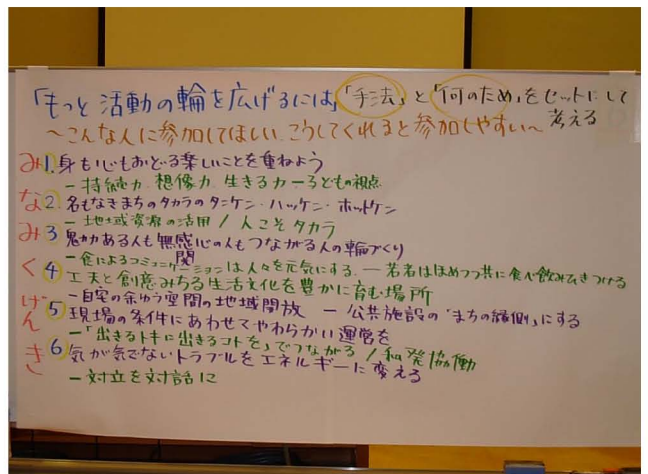 「もっと活動の輪を広げるには」「手法」と「何のため」をセットにして
考える
～こんな人に参加してほしい こうしてくれると参加しやすい～
み1.身も心もおどる楽しいことを重ねよう
－持続力 想像力 生きる力－子どもの視点
な2.名もなきまちのタカラのタンケン・ハッケン・ホットケン
－地域資源の活用 / 人こそタカラ
み3 魅力ある人も無感心の人もつながる人の輪づくり
関
－食によるコミュニケーションは人々を元気にする －若者はほめつつ共に食べ飲みひきつける
く4 工夫と創意みちる生活文化を豊かに育む場所
－自宅の余ゆう空間の地域開放 － 公共施設の"まちの縁側"にする
げん5 現場の条件にあわせてやわらかい運営を
－「出きるトキに出きるコトを」でつながる / 私発協働
き6 気が気でないトラブルをエネルギーに変える
－対立を対話に